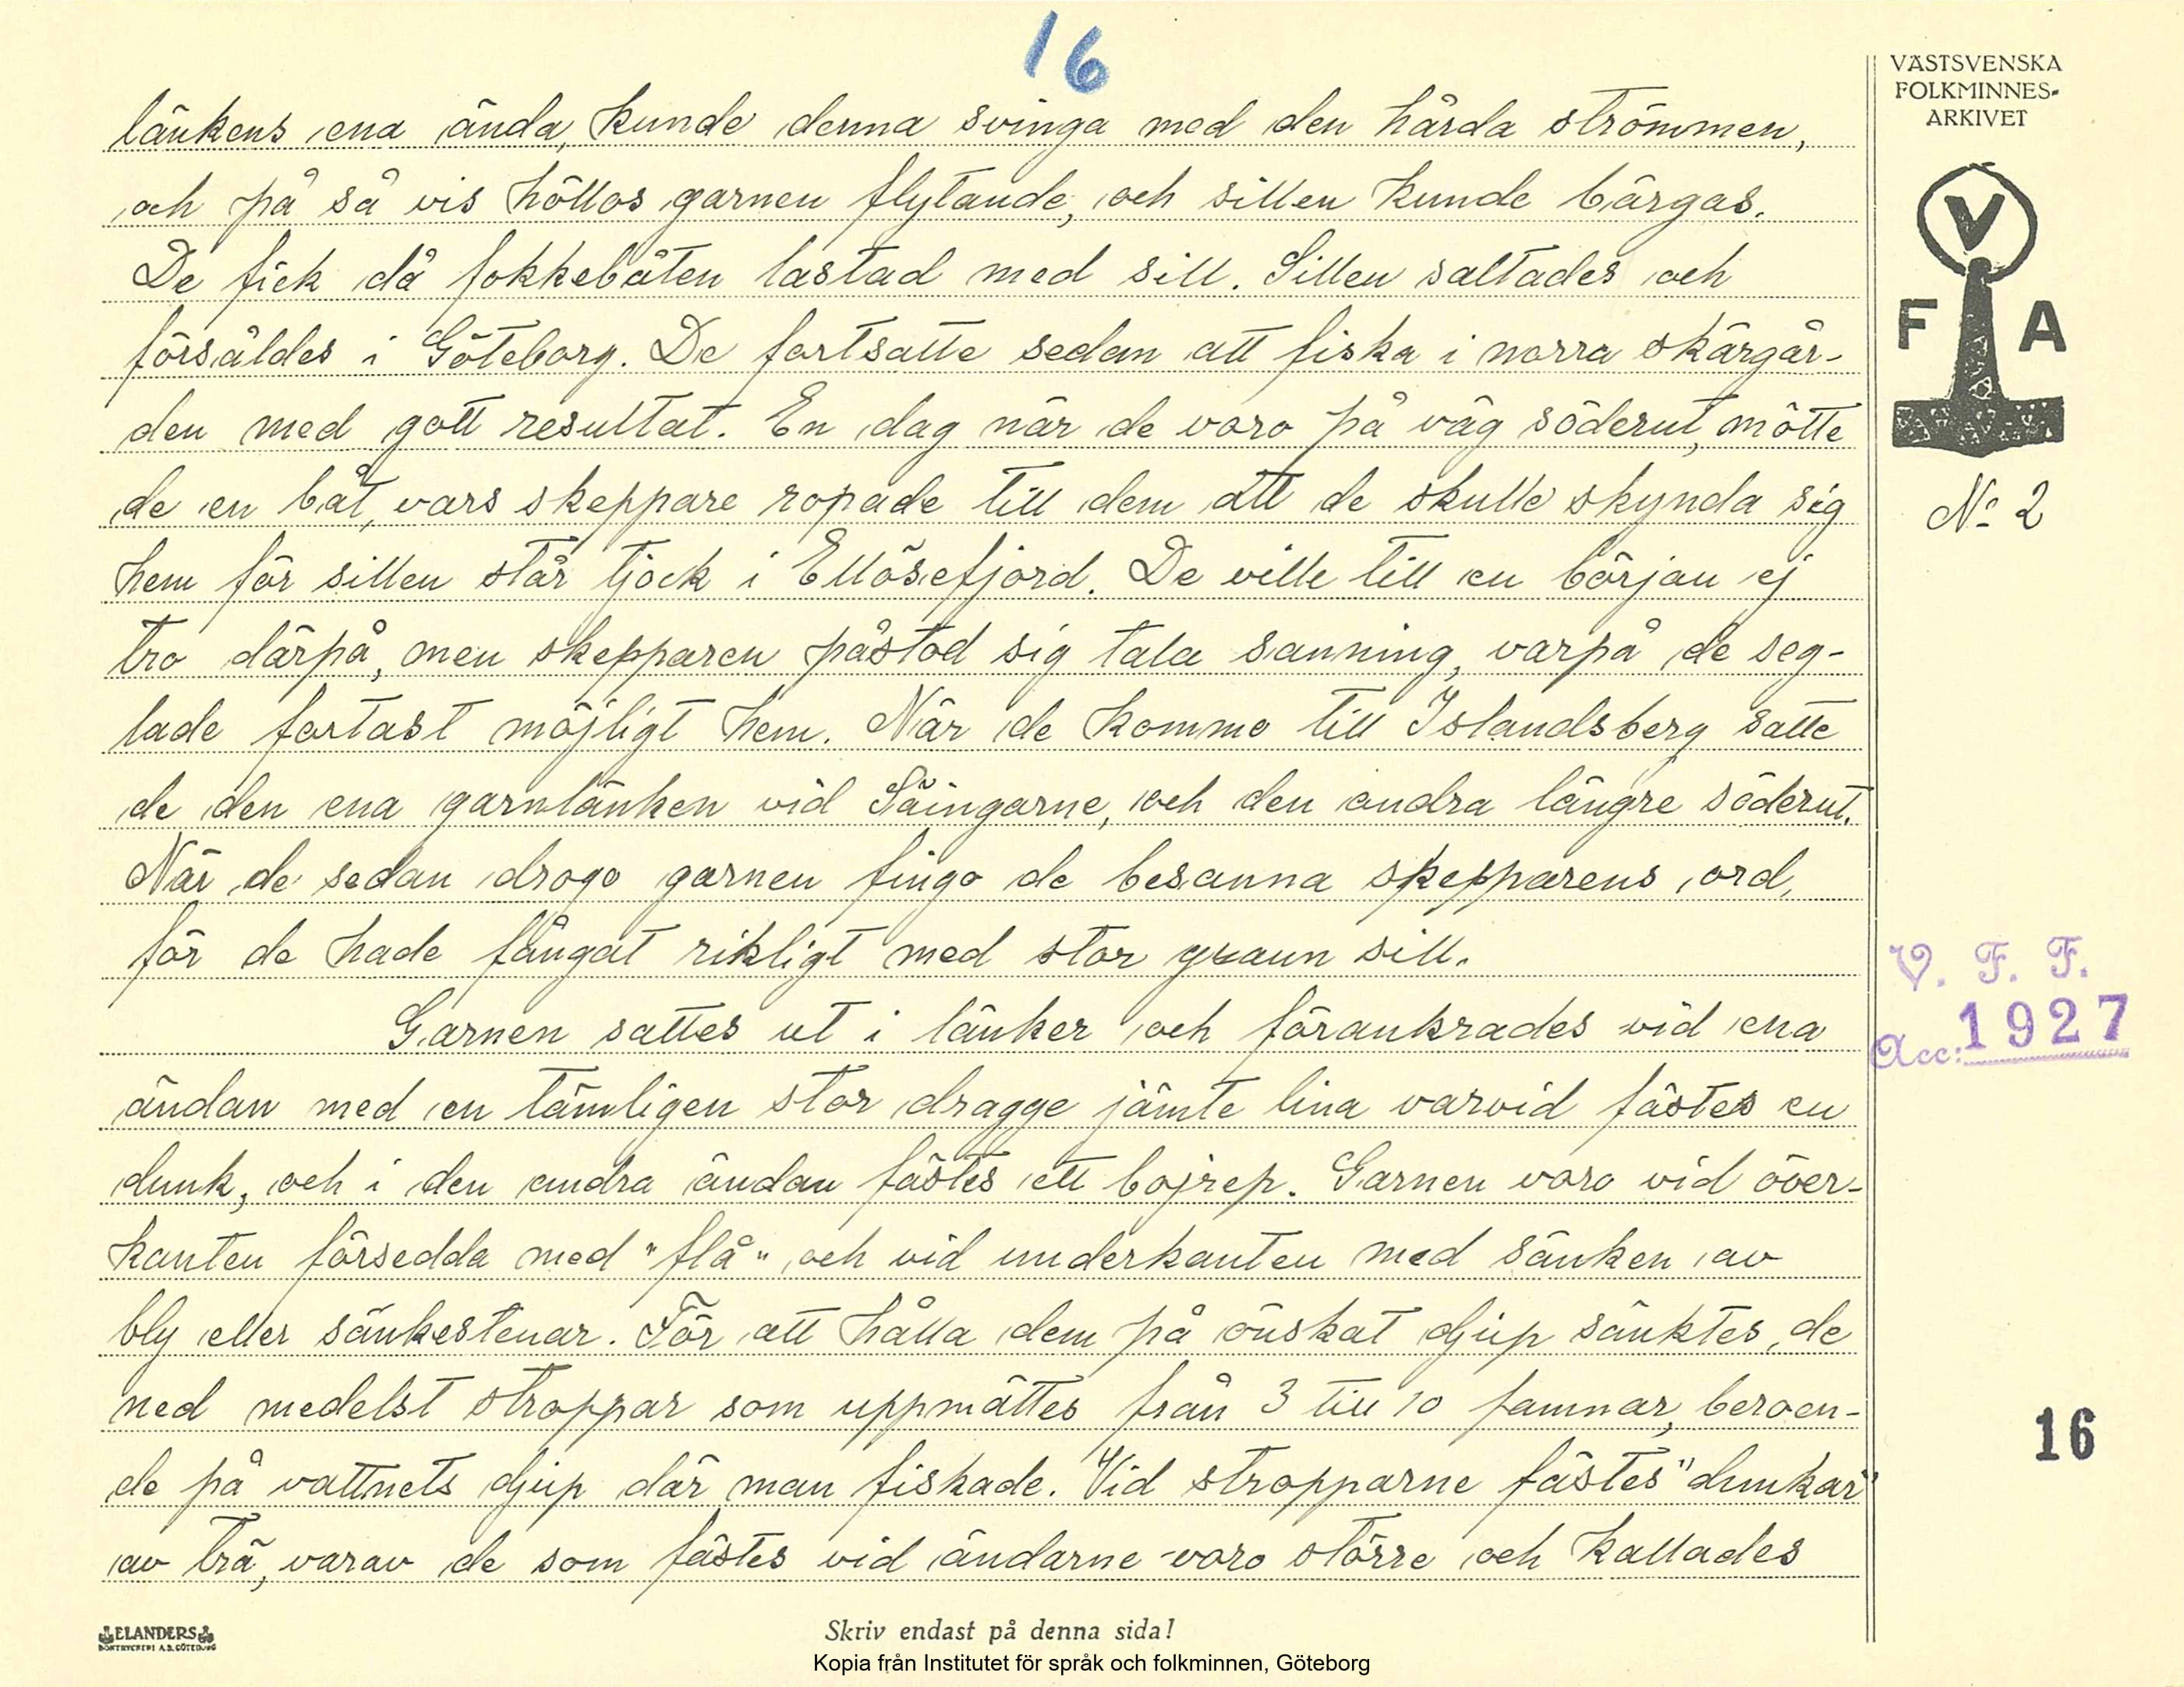 16
länkens ena ända, kunde denna svinga med den hårda strömmen,
och på så vis höllos garnen flytande, och sillen kunde bärgas.
De fick då fokkebåten lastad med sill. Sillen saltades och
försåldes i Göteborg. De fortsatte sedan att fiska i norra skärgår-
den med gott resultat. En dag när de voro på väg söderut, mötte
de en båt, vars skeppare ropade till dem att de skulle skynda sig
hem för sillen står tjock i Ellösefjord. De ville till en början ej
tro därpå, men skepparen påstod sig tala sanning, varpå de seg-
lade fortast möjligt hem. När de kommo till Islandsberg satte
de den ena garnlänken vid Säingarne, och den andra längre söderut.
När de sedan drogo garnen fingo de besanna skepparens ord,
för de hade fångat rikligt med stor grann sill.
Garnen sattes ut i länker och förankrades vid ena
ändan med en tämligen stor dragge jämte lina varvid fästes en
dunk, och i den andra ändan fästes ett bojrep. Garnen voro vid över-
kanten försedda med "flå" och vid underkanten med sänken av
bly eller sänkestenar. För att hålla dem på önskat djup sänktes de
ned medelst stroppar som uppmättes från 3 till 10 famnar, beroen-
de på vattnets djup där man fiskade. Vid stropparne fästes "dunkar"
av trä, varav de som fästes vid ändarne voro större och kallades
VÄSTSVENSKA
FOLKMINNES-
ARKIVET
V
F A
No 2
V. F. F.
Acc: 1927
16
ELANDERS
BOKTRYCKERI A.B. GÖTEBORG
Skriv endast på denna sida!
Kopia från Institutet för språk och folkminnen, Göteborg